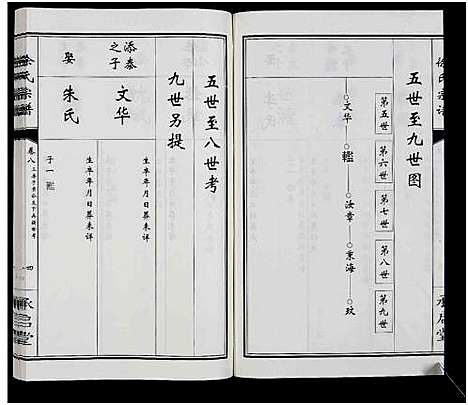 徐氏宗谱
五世至九世图
第五世
第六世
第七世
第八世
第九世
文华
汝章
业海
玟
承启堂
五世至八世考
九世另提
添泰之子
文华
生卒年月日葬未详
娶
朱氏
生卒年月日葬未详
子一
徐氏宗谱
卷八
四
承启堂